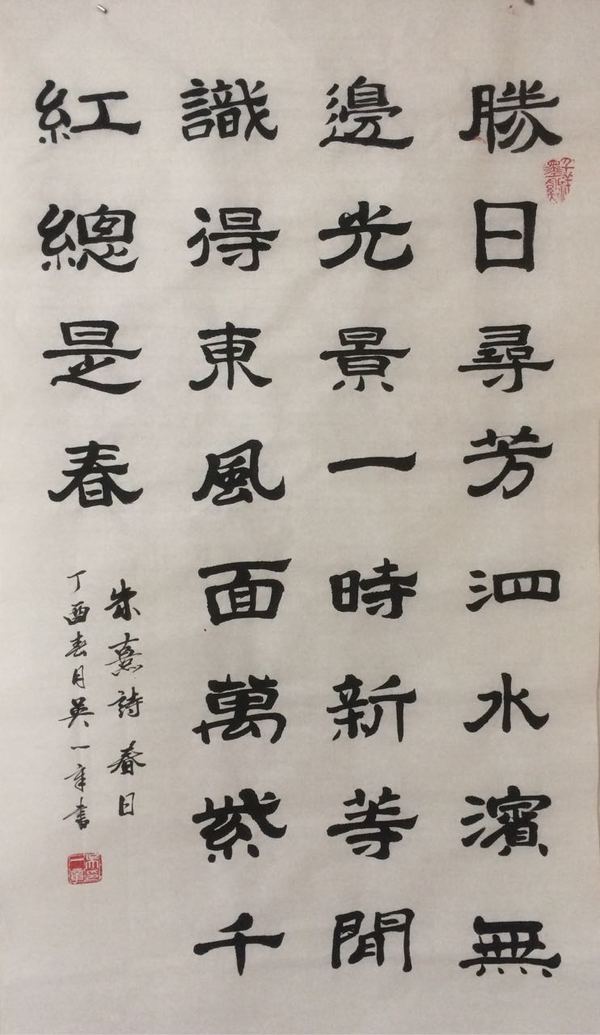 勝日尋芳泗水濱無
邊光景一時新等閒
識得東風面萬紫千
紅總是春
朱熹詩春日
丁酉春月吴一書